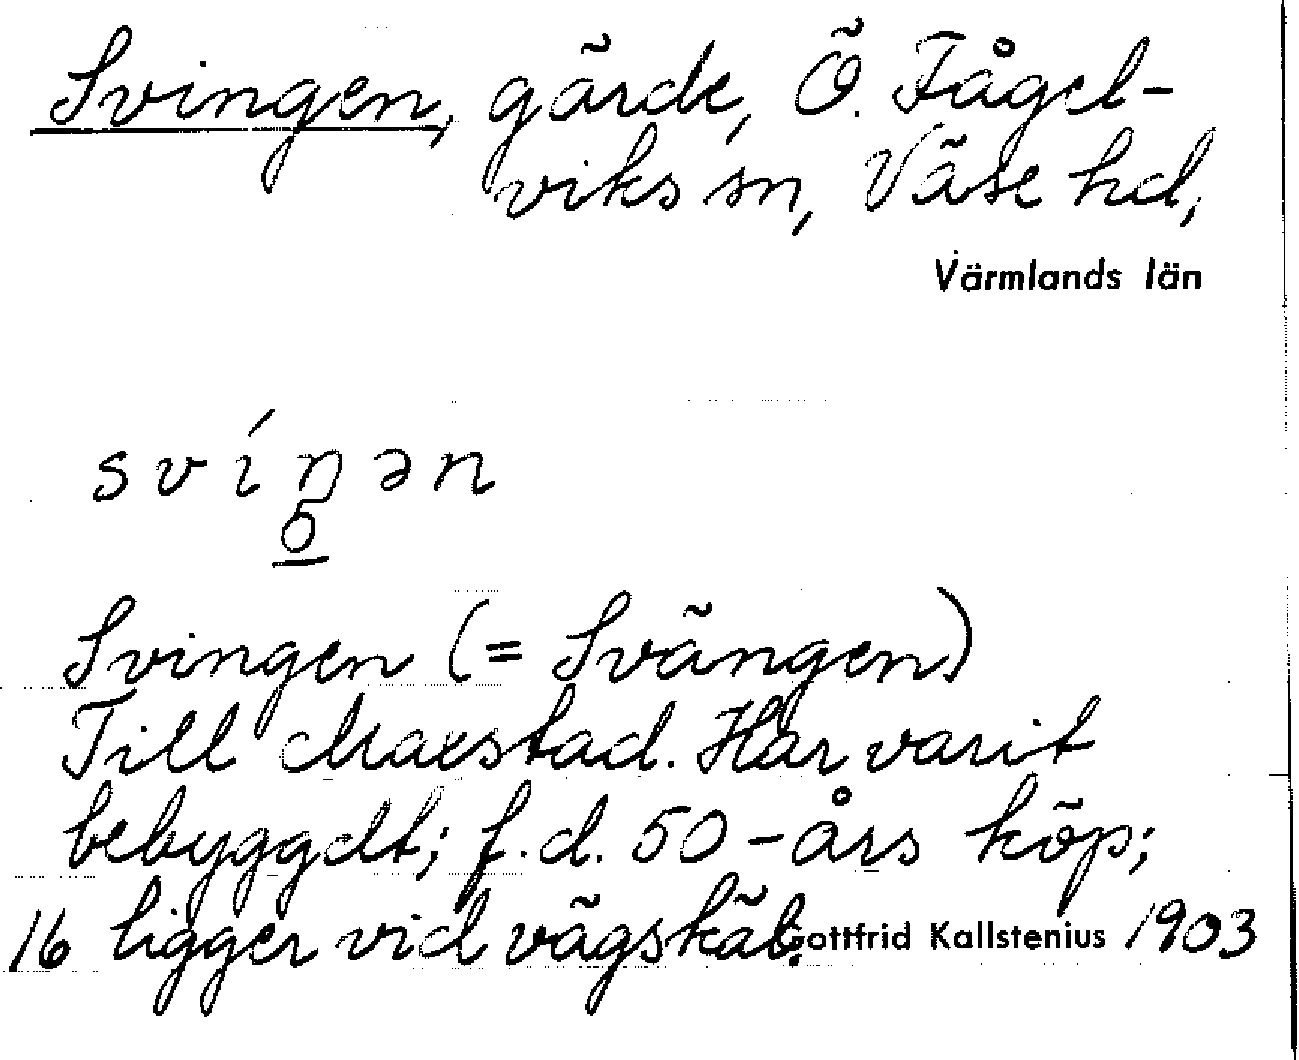 Svingen, gärde, Ö. Fågel-
viks sn, Väse hd,
Värmlands län
svíŋən
5
Svingen (= Svängen)
Till Maxstad. Har varit
bebyggdt; f.d. 50-års köp;
16 ligger vid vägskäl. Gottfrid Kallstenius 1903